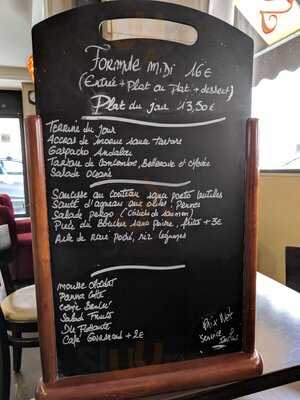 Formule midi 16€
(Entrée + Plat ou Plat + dessert)
Plat du Jour 13,50€
Terrine du Jour
Accras de morue sauce tartare
Gaspacho Andalou
Tartare de Concombre, Betterave et
Salade Océane
Saucisse au couteau sauce porto lentilles
Sauté d'agneau aux olives, Pennes
Salade (Céviche de saumon)
Pavé du Boucher sauce poivre, frites + 3€
Aile de raie poché, riz légumes
mousse chocolat
Panna Cotta
Crème Brulée
Salade Fruits
Ile Flottante
Café Gourmand + 2€
Prix Net
Service